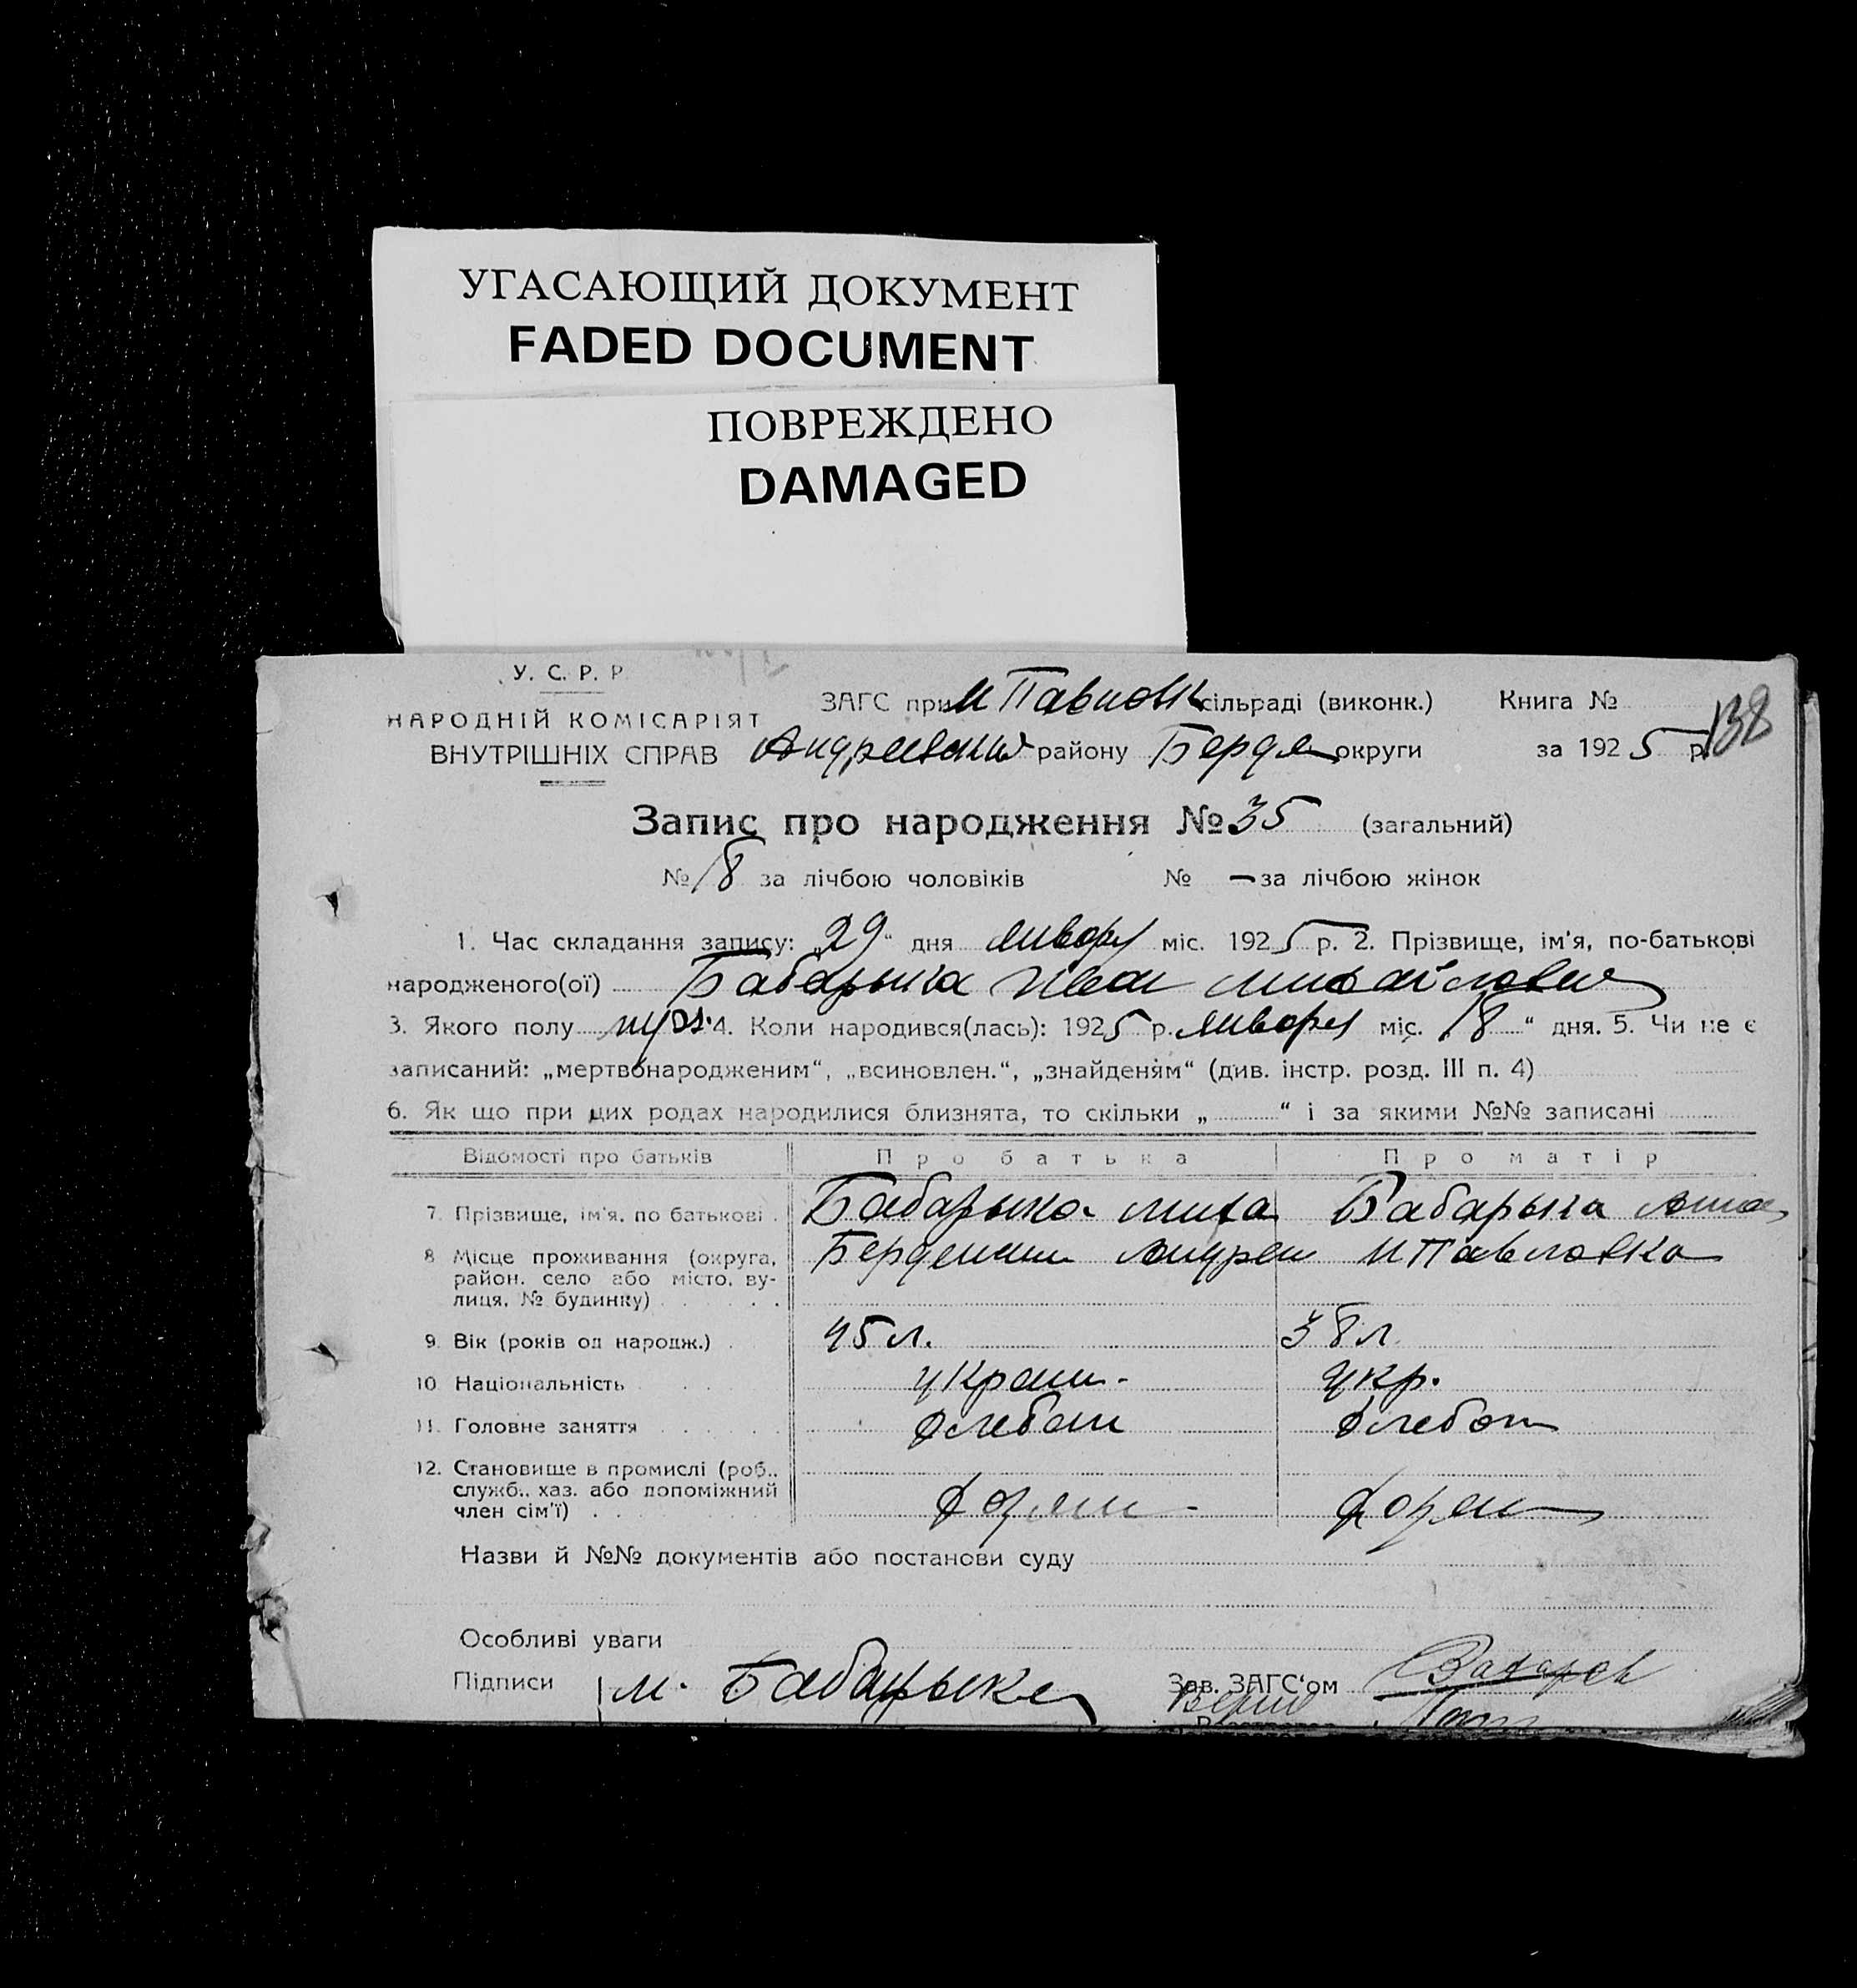 УГАСАЮЩИЙ ДОКУМЕНТ
FADED DOCUMENT
ПОВРЕЖДЕНО
DAMAGED
У. С. Р. Р
НАРОДНІЙ КОМІСАРІЯТ
ВНУТРІШНІХ СПРАВ
ЗАГС при Н Павловк сільраді (виконк.) Книга №
138
району Бердян округи за 1925 р.
Запис про народження № 35 (загальний)
№ 18 за лічбою чоловіків № — за лічбою жінок
1. Час складання запису: „29“ дня январ міс. 1925 р. 2. Прізвище, ім'я, по-батькові
народженого(ої) Бабарыка Иван Михайлович
3. Якого полу муж. 4. Коли народився(лась): 1925 р. января міс. 18“ дня. 5. Чи не є
записаний: „мертвонародженим“, „всиновлен.“, „знайденям“ (див. інстр. розд. III п. 4)
6. Як що при цих родах народилися близнята, то скільки „ “ і за якими №№ записані
Відомості про батьків Про батька Про матір
7. Прізвище, ім'я, по батькові Бабарыка Миха Бабарыка Анна
8 Місце проживання (округа, Андрее Н Павловка
район, село або місто, ву-
лиця, № будинку)
9. Вік (років од народж.) 45 л. 38 л.
10. Національність украин. укр.
11. Головне заняття хлебоп хлебоп
12. Становище в промислі (роб.,
служб., хаз. або допоміжний
член сім'ї) хозяин хозяи
Назви й №№ документів або постанови суду
Особливі уваги
Підписи М. Бабарыка Зав. ЗАГС'ом Захаров